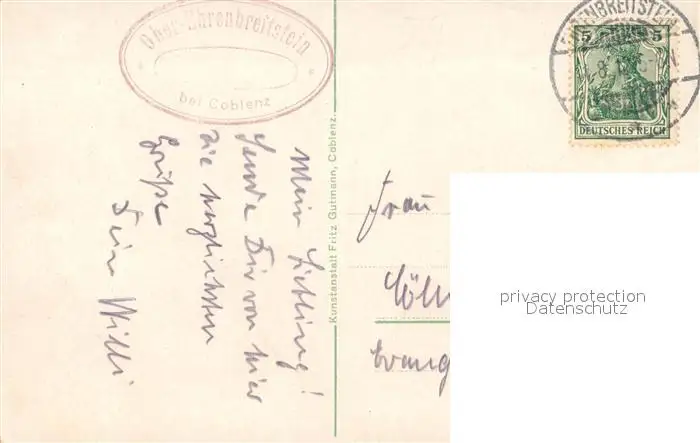 Ober-Ehrenbreitstein
bei Coblenz
Mein Liebling!
Sende Dir von hier
die herzlichsten
Grüße
Dein Willi
Kunstanstalt Fritz Gutmann, Coblenz.
EHRENBREITSTEIN
5 5
DEUTSCHES REICH
Frau
Cöln
Evang
privacy protection
Datenschutz